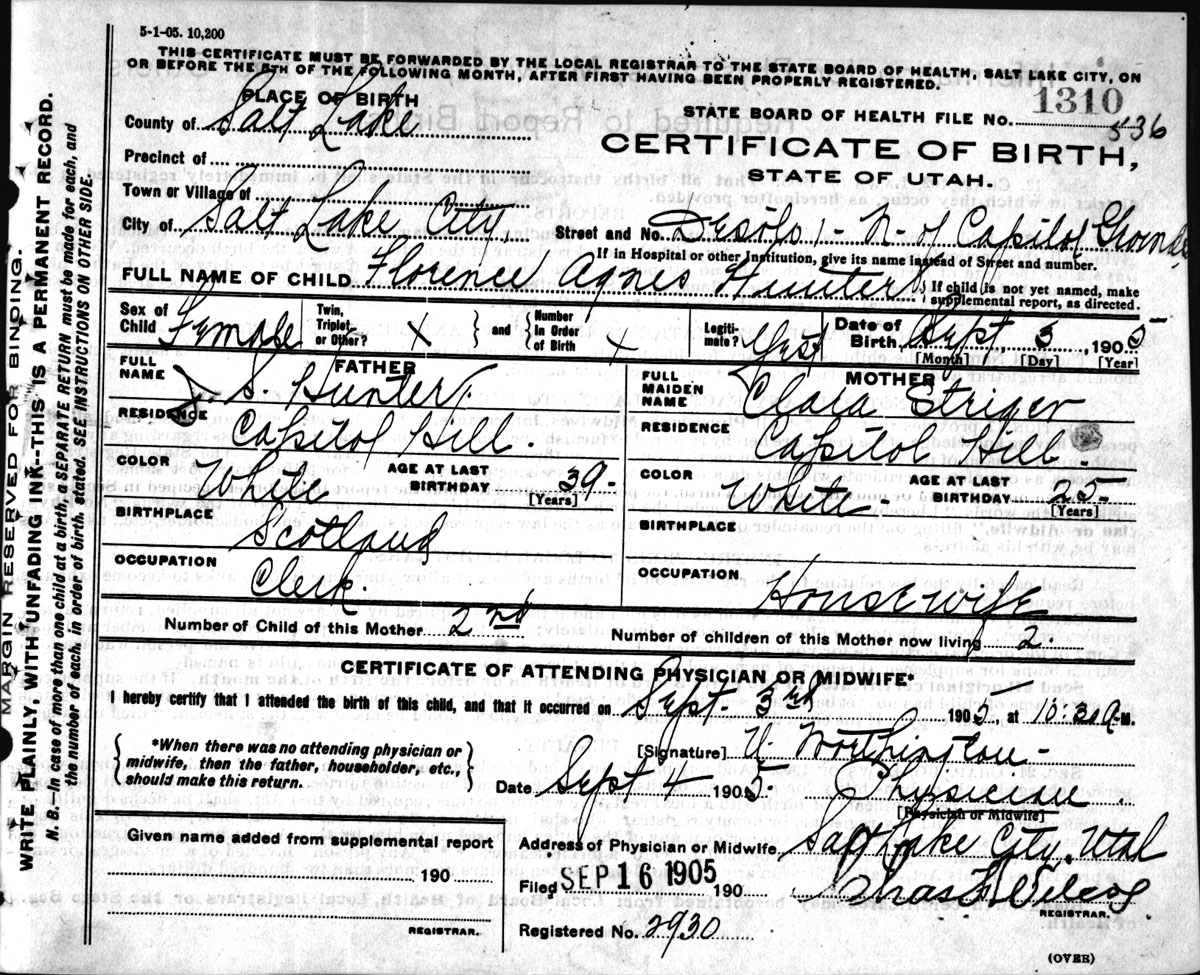 5-1-05. 10,200
THIS CERTIFICATE MUST BE FORWARDED BY THE LOCAL REGISTRAR TO THE STATE BOARD OF HEALTH, SALT LAKE CITY, ON
OR BEFORE THE 5TH OF THE FOLLOWING MONTH, AFTER FIRST HAVING BEEN PROPERLY REGISTERED.
PLACE OF BIRTH
STATE BOARD OF HEALTH FILE NO. 1310
536
County of Salt Lake
CERTIFICATE OF BIRTH,
STATE OF UTAH.
Precinct of
Town or Village of
City of Salt Lake City, Street and No. N. of Capitol Grounds
If in Hospital or other Institution, give its name instead of Street and number.
FULL NAME OF CHILD Florence Agnes Hunter { If child is not yet named, make
supplemental report, as directed.
Sex of Child Female Twin, Triplet, or Other? X } and { Number In Order of Birth X Legiti-mate? Yes Date of Birth Sept, 3, 1905
[Month] [Day] [Year]
FATHER
FULL NAME S. Hunter
RESIDENCE Capitol Hill
COLOR White AGE AT LAST BIRTHDAY 39 [Years]
BIRTHPLACE Scotland
OCCUPATION Clerk.
MOTHER
FULL MAIDEN NAME Clara
RESIDENCE Capitol Hill.
COLOR White AGE AT LAST BIRTHDAY 25 [Years]
BIRTHPLACE
OCCUPATION Housewife
Number of Child of this Mother 2nd Number of children of this Mother now living 2
CERTIFICATE OF ATTENDING PHYSICIAN OR MIDWIFE*
I hereby certify that I attended the birth of this child, and that it occurred on Sept. 3rd 1905, at M.
{ *When there was no attending physician or
midwife, then the father, householder, etc.,
should make this return. }
[Signature] U. Worthington
Date Sept 4 1905. Physician.
[Physician or Midwife]
Given name added from supplemental report
190
REGISTRAR.
Address of Physician or Midwife Salt Lake City, Utah
Filed SEP 16 1905 190
REGISTRAR.
Registered No. 2930
(OVER)
MARGIN RESERVED FOR BINDING.
WRITE PLAINLY, WITH UNFADING INK--THIS IS A PERMANENT RECORD.
N. B.--In case of more than one child at a birth, a SEPARATE RETURN must be made for each, and
the number of each, in order of birth, stated. SEE INSTRUCTIONS ON OTHER SIDE.